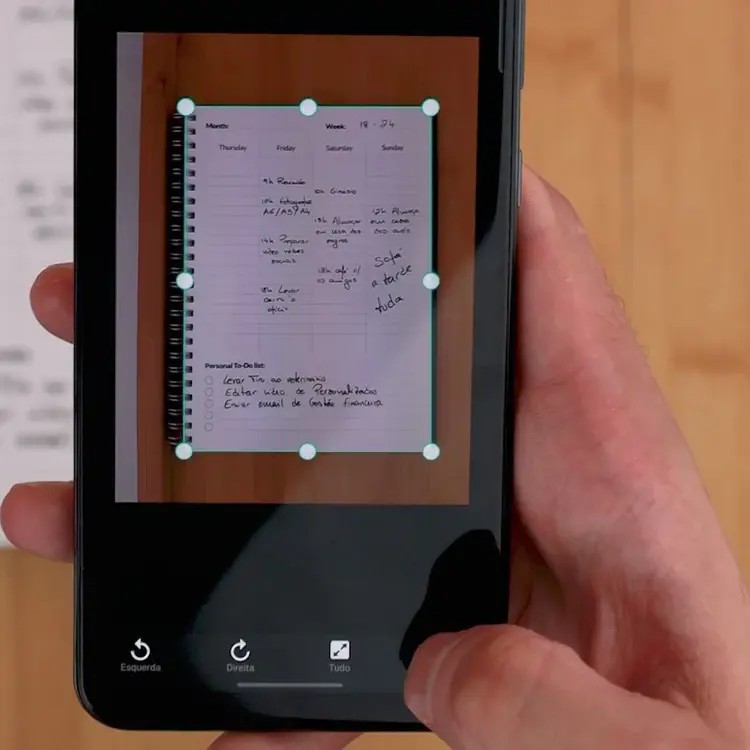 Month:
Week: 18 - 24
Thursday Friday Saturday Sunday
9h Reunião
10h Ginásio
10h fotografar
A6/A5/A4
13h Almoçar
em casa dos
sogros
12h Almoço
em casa
dos avós
14h Preparar
vídeo redes
sociais
18h café c/
os amigos
Sofá
a tarde
tuda
18h Levar
carro à
oficina
Personal To-Do list:
Levar Tim ao veterinário
Editar vídeo de Personalizados
Enviar email de Gestão financeira
Esquerda
Direita
Tudo